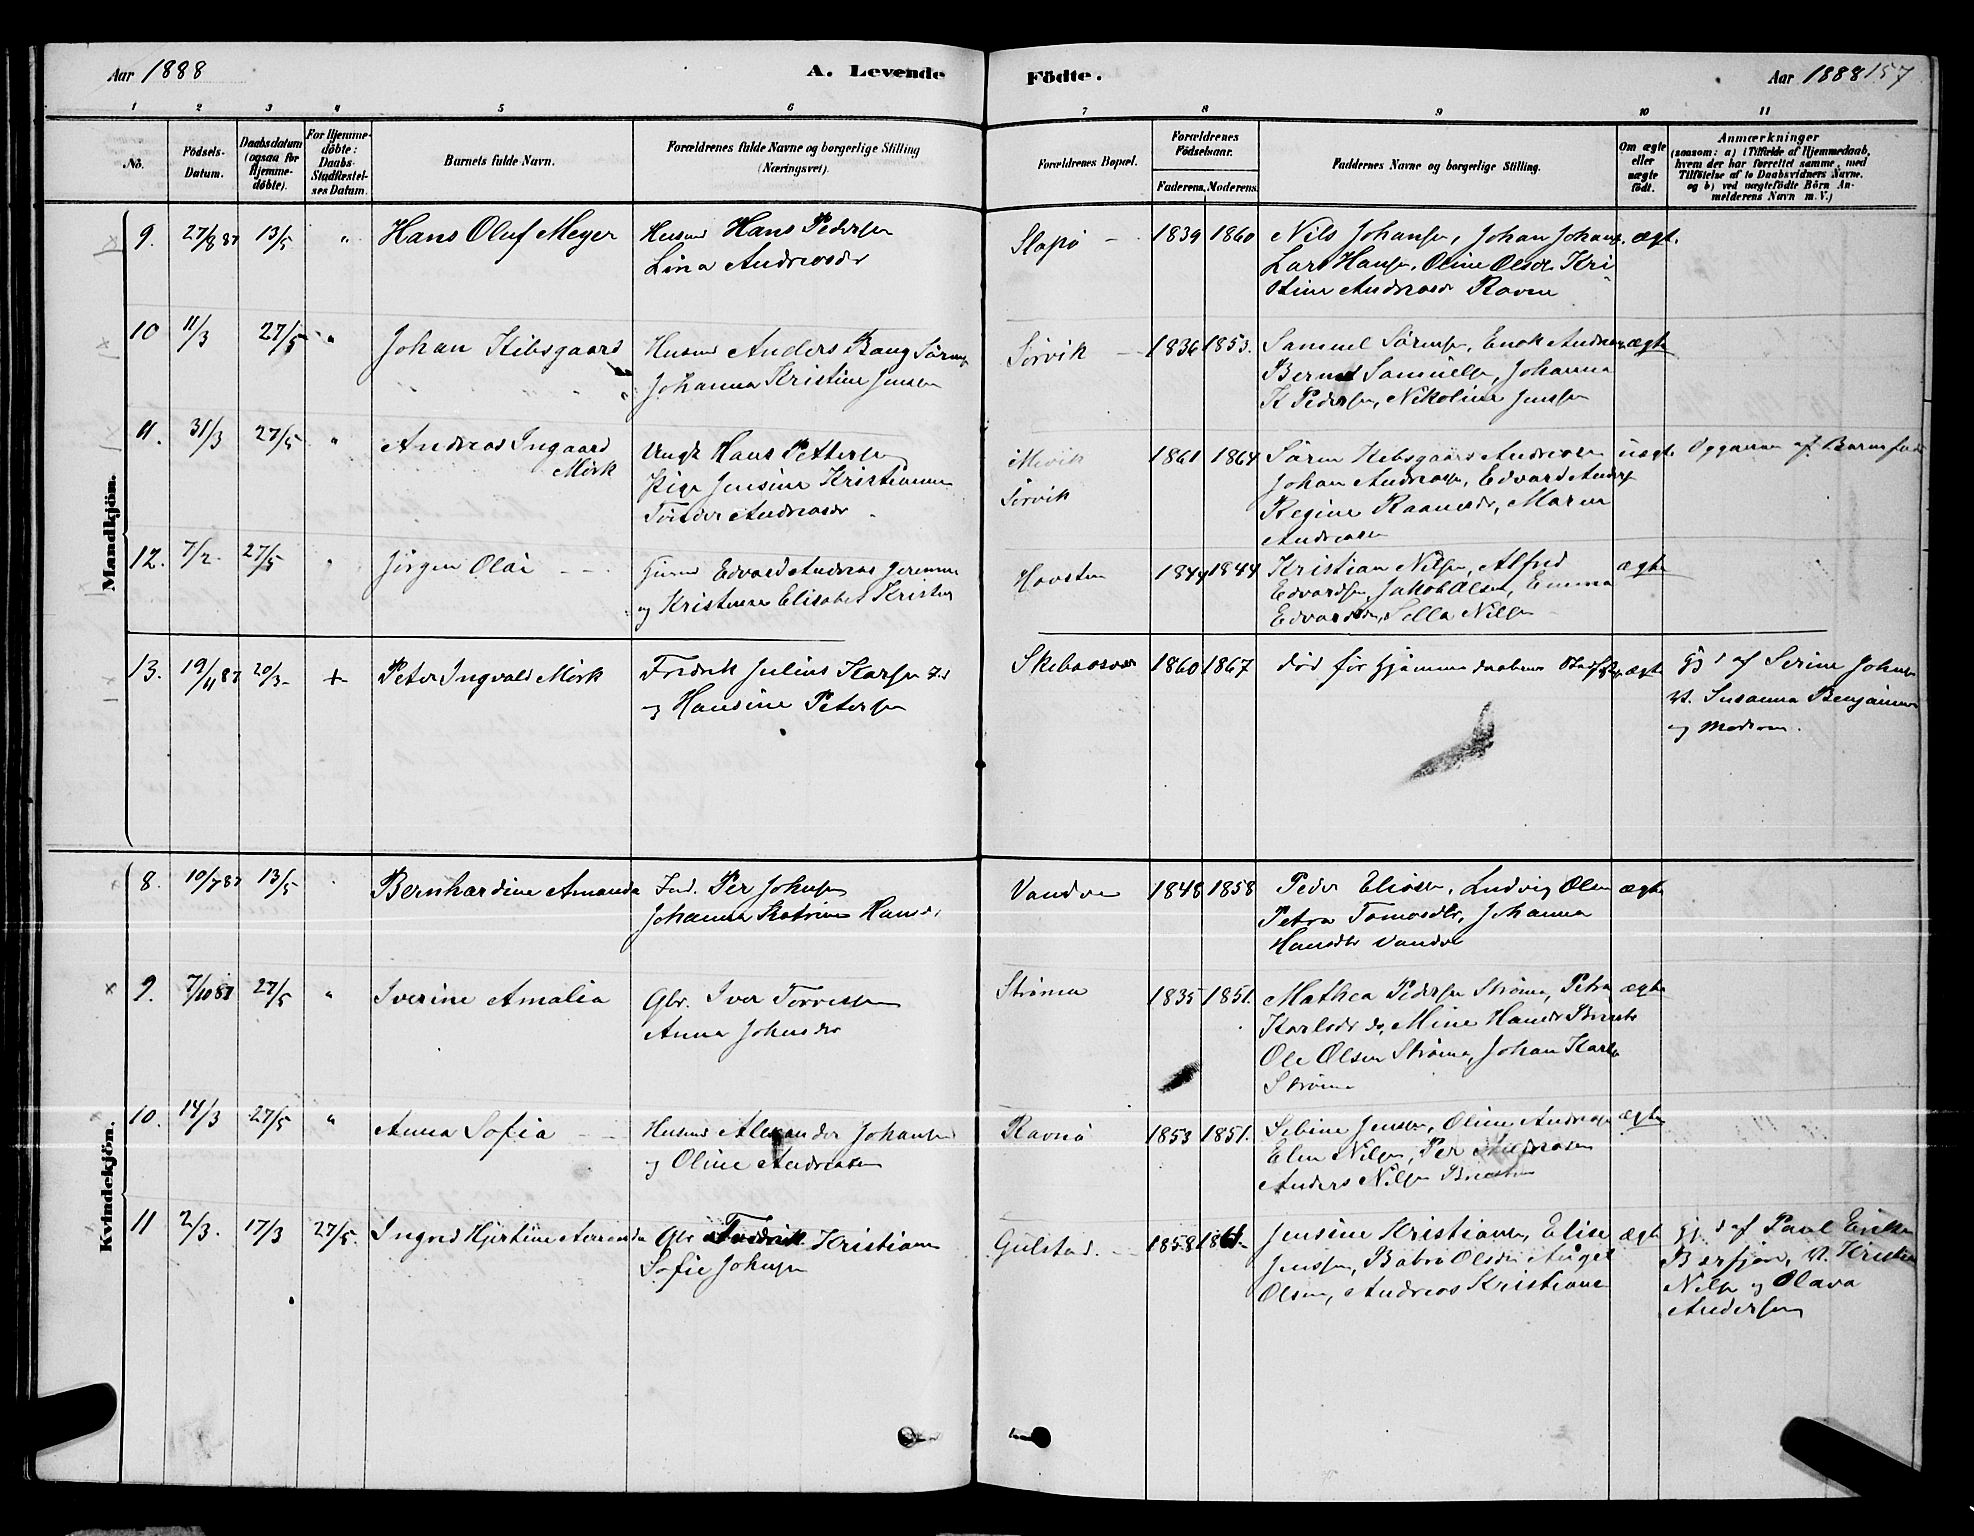 Aar 1888
A. Levende
Födte.
Aar 1888 157
1 2 3 4 5 6 7 8 9 10 11
No.
Födsels-Datum.
Daabsdatum (ogsaa for Hjemme-döbte).
For Hjemme-döbte: Daabs-Stadfæstel-ses Datum.
Barnets fulde Navn.
Forældrenes fulde Navne og borgerlige Stilling
(Næringsvei).
Forældrenes Bopæl.
Forældrenes Födselsaar.
Faderens. Moderens.
Faddernes Navne og borgerlige Stilling.
Om ægte eller uægte födt.
Anmærkninger
(saasom: a) i Tilfælde af Hjemmedaab,
hvem der har forrettet samme, med
Tilföielse af to Daabsvidners Navne.
og b) ved uægtefödte Börn An-
melderens Navn m. V.)
Mandkjön.
9. 27/8 87 13/5 " Hans Oluf Meyer
Husm Hans Pedersen
Lina Andreasdr
Slapø 1839 1860
Nils Johansen, Johan Johans
Lars Hansen, Oline Olsdr Kri
stine Andreasdr Ravnø
ægt.
10 11/3 27/5 " Johan Kibsgaard
Husm Anders Bang Sörens
Johanna Kristine Jensen
Sørvik 1836 1853.
Samuel Sörensen, Enok Andreas
Bernt Samuelsen, Johanna
K Pedersen, Nikoline Jenssen
ægte
11. 31/3 27/5 " Andreas Ingaard
Mörk
Ungk Hans Pettersen
Pige Jensine Kristianne
Andreasdr
Mevik
Sørvik
1861 1864
Sören Kibsgaard Andreasen
Johan Andreasen, Edvard Anders
Regine Rasmusdr, Maren
Andreasen
uægt. Opgaven af Barnefad
12. 7/2 27/5 " Jörgen Olai
Edvard Andreas
og Elisabet Krist
Havsten 1844 1844
Kristian Nilsen, Alfred
Edvardsen, Jakob Olsen, Emma
Edvardsdr, Sella Nilsen
ægte
13. 19/11 87 20/3 + Peter Ingvald Mörk
Fredrik Julius Karlsen
og Hansine Petersen
1860 1867
död för hjemmedaabens Stadf
ægte
af Serine Johns
Vt. Susanna Benjamins
og Moderen.
Kvindekjön.
8. 10/7 87 13/5 Bernhardine Amanda
Ind. Per Johnsen
Johanna Katrine Hansd.
Vandve 1848 1858
Peder Eliasen, Ludvig Olsen
Petra Tomasdtr, Johanna
Hansdtr Vandve
ægte
9. 7/10 87 27/5 " Iverine Amalia
Gbr. Iver Torressen
Anna Johnsdr
Strømen 1835 1851.
Mathea Pedersen Strömen, Petra
Karlsdr do, Mine Hansdr
Ole Olsen Strömen, Johan Karls
Strömen
ægte
10. 14/3 27/5 " Anna Sofia
Husm Alexander Johansen
og Oline Andreasen
Ravnö 1853 1851.
Sebine Jensen, Oline Andreas
Elen Nilsen, Per Andreasen
Anders Nilsen
ægte
11 2/3. 17/3 27/5. Ingvd Hjertine Amanda
Gbr Fredrik Kristian
Sofie Johnsen
Gulstad. 1858 1861.
Jensine Kristiansen, Elise
Jenssen, Babra Olsdr
Olsen, Andreas Kristian
ægte
af Paul Erikse
Vt. Kristian
Nilsen og Olava
Andersen